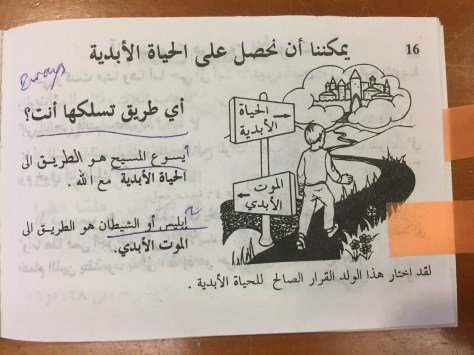 16
يمكننا أن نحصل على الحياة الأبدية
2 ways
أي طريق تسلكها أنت؟
1 يسوع المسيح هو الطريق الى
الحياة الأبدية مع الله .
2 إبليس أو الشيطان هو الطريق الى
الموت الأبدي.
الحياة
الأبدية
الموت
الأبدي
لقد إختار هذا الولد القرار الصالح للحياة الأبدية .